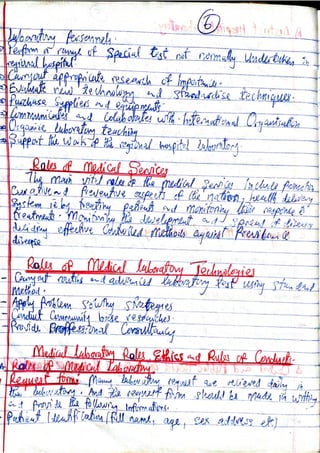 6
laboratory Personnels.
Perform a range of Special test not normally Undertaken in
regional hospital
Carryout appropriate research of Importance.
Evaluate new technology and standardise techniques.
Purchase Suppliers and equipments
Communicates and Colaborates with International Organisation
Organise laboratory teaching
Support the Work of the regional hospital laboratory.
Roles of Medical Services
The main vital roles of the medical Service include
Curative and Preventive aspects of the nation, health delivery
System is by treating patient and monitoring their response to
treatment. Monitoring the development and spread of disease
effective Control Methods against
disease
Roles of Medical laboratory Technologies
- Carryout routine and advanced laboratory test using Standard
Method.
- Apply Problem Solving Strategies
- Conduct Community base researches.
- Provide Proffessional Consultancy
Medical Laboratory Roles, Ethics and Rules of Conducts.
Roles of Medical laboratory
Request form: Many laboratory request are recieved daily in
the laboratory. And the request form should be made in writing
and provide the following informations.
- Patient Identification (full name, age, sex address etc)